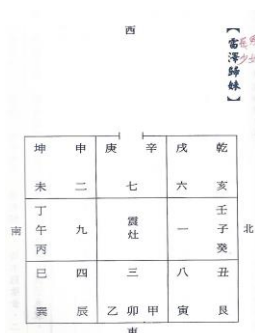 西
【雷澤歸妹】
坤 申 庚 辛 戌 乾
未 二 七 六 亥
丁 壬
南 午 九 震灶 一 子 北
丙 癸
巳 四 三 八 丑
巽 辰 乙 卯 甲 寅 艮
東